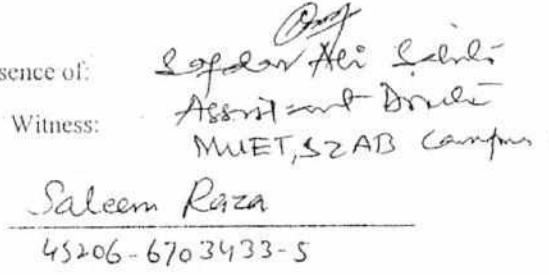 sence of: Safdar Ali
Witness: Assistant
MUET, SZAB Campus
Saleem Raza
45206-6703433-5